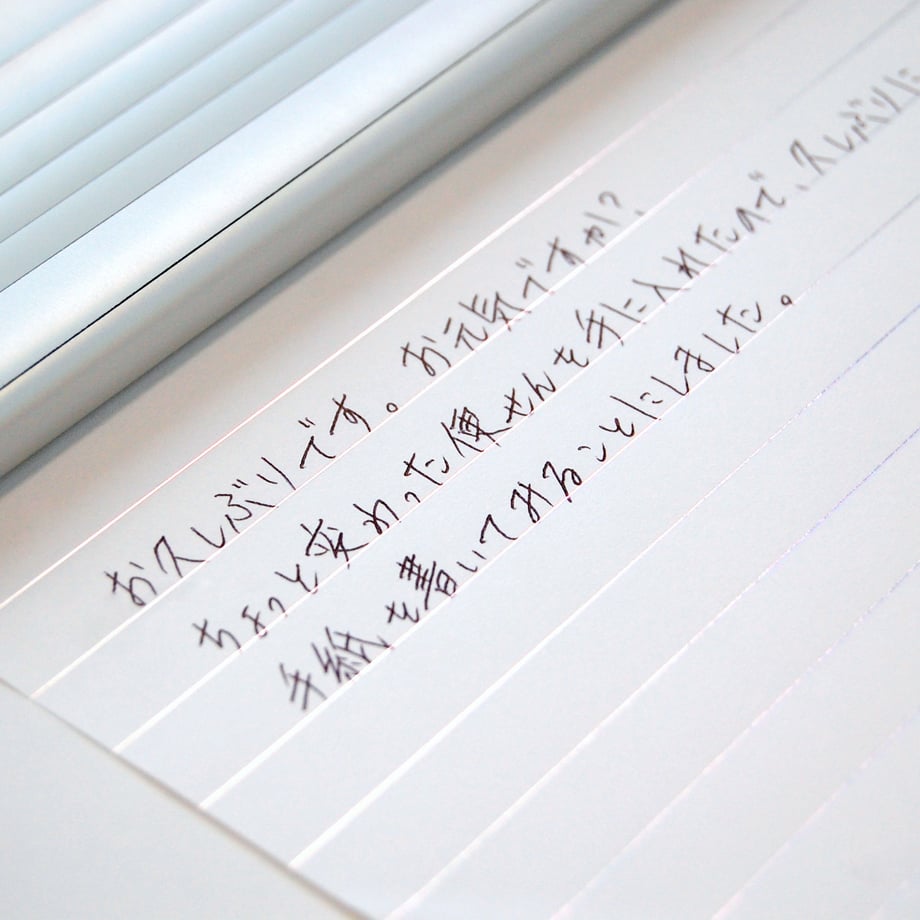 お久しぶりです。お元気ですか?
ちょっと変わった便せんを手に入れたので、久しぶりに
手紙を書いてみることにしました。